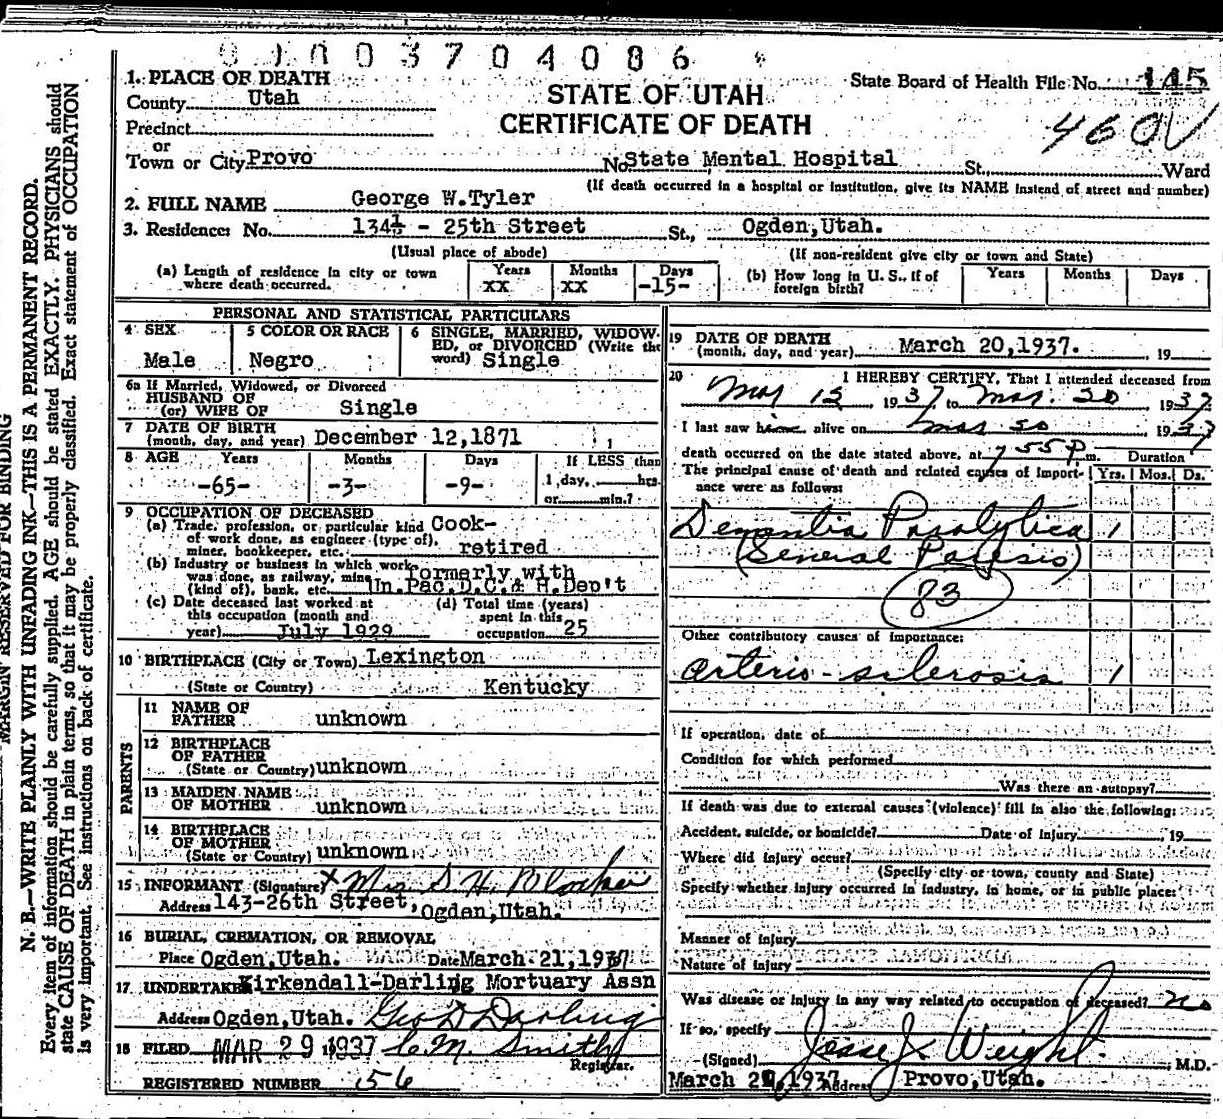 0 1 0 0 3 7 0 4 0 8 6
1. PLACE OF DEATH
County Utah
Precinct
or
Town or City Provo
STATE OF UTAH
CERTIFICATE OF DEATH
State Board of Health File No. 145
460V
No. State Mental Hospital St., Ward
(If death occurred in a hospital or institution, give its NAME instead of street and number)
2. FULL NAME George W.Tyler
3. Residence: No. 134½ - 25th Street St., Ogden,Utah.
(Usual place of abode) (If non-resident give city or town and State)
(a) Length of residence in city or town where death occurred. Years XX Months XX Days -15-
(b) How long in U. S., if of foreign birth? Years Months Days
PERSONAL AND STATISTICAL PARTICULARS
4 SEX Male
5 COLOR OR RACE Negro
6 SINGLE, MARRIED, WIDOWED, or DIVORCED (Write the word) Single
6a If Married, Widowed, or Divorced
HUSBAND OF
(or) WIFE OF Single
7 DATE OF BIRTH
(month, day, and year) December 12,1871
8 AGE Years Months Days If LESS than
-65- -3- -9- 1 day, hrs.
or min.?
9 OCCUPATION OF DECEASED
(a) Trade, profession, or particular kind Cook-
of work done, as engineer (type of),
miner, bookkeeper, etc. retired
(b) Industry or business in which work formerly with
was done, as railway, mine
(kind of), bank, etc. Un.Pac.D.C.& H.Dep't
(c) Date deceased last worked at
this occupation (month and
year) July 1929
(d) Total time (years)
spent in this
occupation 25
10 BIRTHPLACE (City or Town) Lexington
(State or Country) Kentucky
PARENTS
11 NAME OF
FATHER unknown
12 BIRTHPLACE
OF FATHER
(State or Country) unknown
13 MAIDEN NAME
OF MOTHER unknown
14 BIRTHPLACE
OF MOTHER
(State or Country) unknown
15 INFORMANT (Signature) x Mrs S. H.
Address 143-26th Street, Ogden,Utah.
16 BURIAL, CREMATION, OR REMOVAL
Place Ogden,Utah. Date March 21,1937
17 UNDERTAKER Kirkendall-Darling Mortuary Assn
Address Ogden,Utah. Geo D Darling
18 FILED MAR 29 1937 C. M. Smith
Registrar.
REGISTERED NUMBER 156
19 DATE OF DEATH
(month, day, and year) March 20,1937. 19
20 I HEREBY CERTIFY, That I attended deceased from
1937, to Mar. 20 1937
I last saw him alive on Mar 20 1937
death occurred on the date stated above, at 7 55 P m. Duration
The principal cause of death and related causes of importance were as follows: Yrs. Mos. Ds.
Dementia Paralytica 1
(General Paresis)
83
Other contributory causes of importance:
Arterio-sclerosis 1
If operation, date of
Condition for which performed
Was there an autopsy?
If death was due to external causes (violence) fill in also the following:
Accident, suicide, or homicide? Date of injury 19
Where did injury occur?
(Specify city or town, county and State)
Specify whether injury occurred in industry, in home, or in public place:
Manner of injury
Nature of injury
Was disease or injury in any way related to occupation of deceased? no
If so, specify
(Signed) Jesse J. Weight M.D.
March 1937 Address Provo,Utah.
MARGIN RESERVED FOR BINDING
N. B.—WRITE PLAINLY WITH UNFADING INK—THIS IS A PERMANENT RECORD.
Every item of information should be carefully supplied. AGE should be stated EXACTLY. PHYSICIANS should
state CAUSE OF DEATH in plain terms, so that it may be properly classified. Exact statement of OCCUPATION
is very important. See instructions on back of certificate.